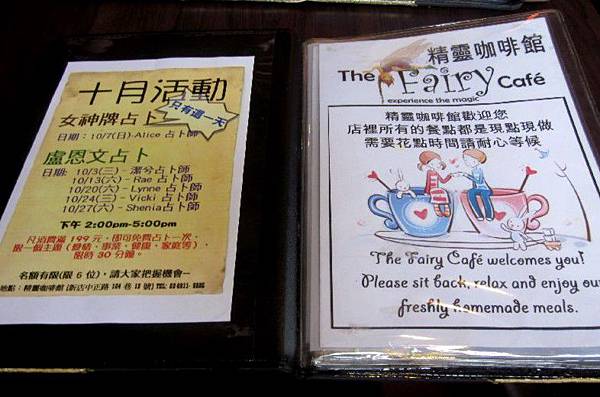 十月活動
只有這一天
女神牌占卜
日期：10/7(日)-Alice 占卜師
盧恩文占卜
日期: 10/3(三) - 潔兮占卜師
10/13(六) - Rae 占卜師
10/20(六) - Lynne 占卜師
10/24(三) - Vicki 占卜師
10/27(六) - Shenia占卜師
下午 2:00pm-5:00pm
凡消費滿 199 元，即可免費占卜一次，
限一個主題 (愛情、事業、健康、家庭等)，
限時 30 分鐘。
名額有限(限 6 位)，請大家把握機會~
地點：精靈咖啡館
精靈咖啡館
The Fairy Café
experience the magic
精靈咖啡館歡迎您
店裡所有的餐點都是現點現做
需要花點時間請耐心等候
The Fairy Café welcomes you!
Please sit back, relax and enjoy our
freshly homemade meals.